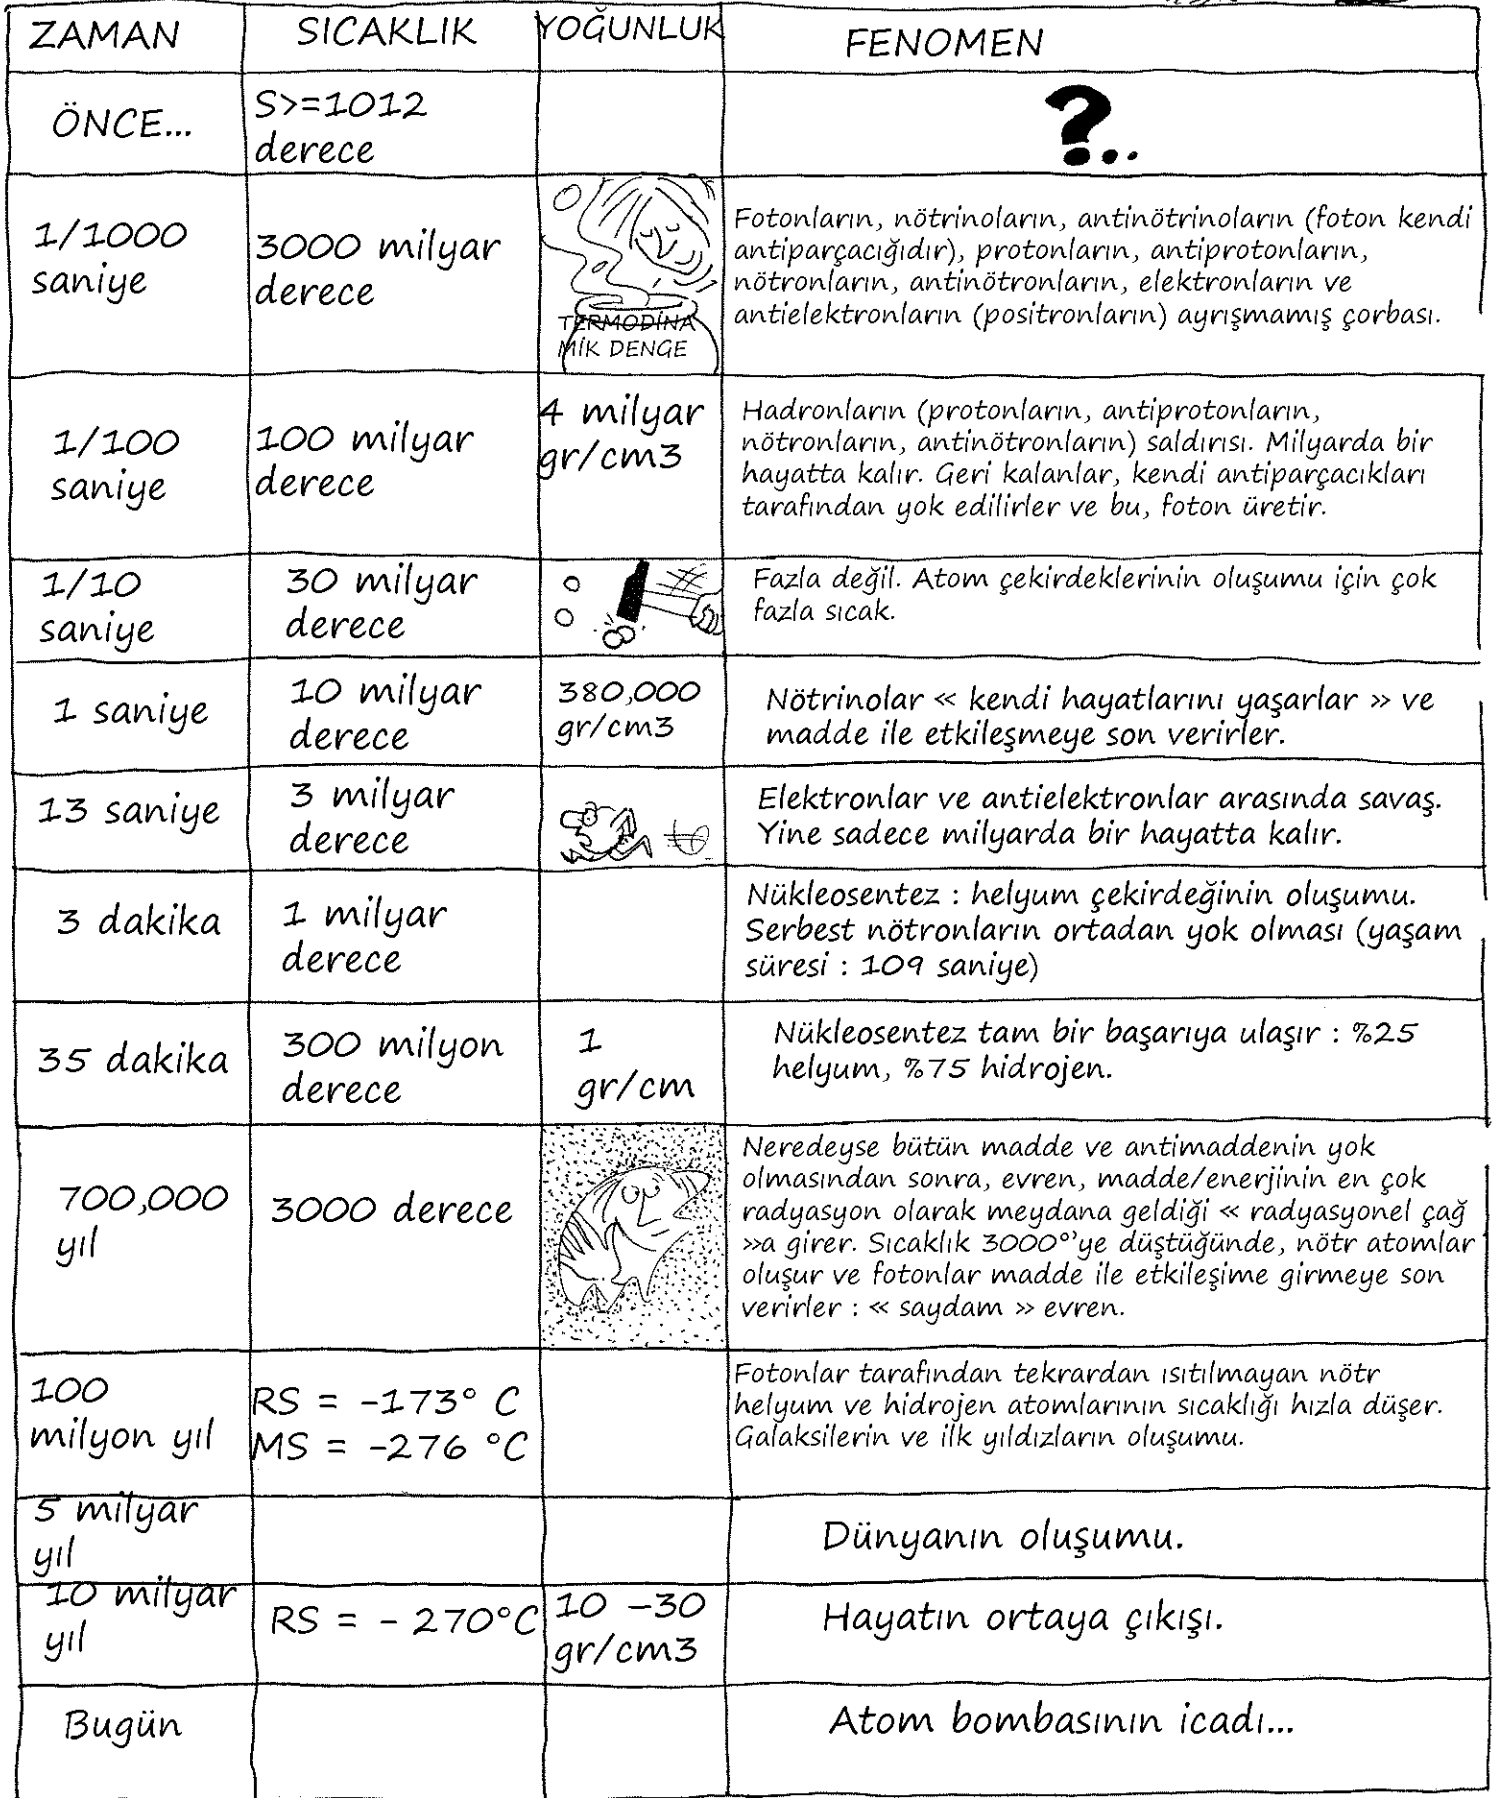 ZAMAN
SICAKLIK
YOĞUNLUK
FENOMEN
ÖNCE...
S>=1012
derece
?..
1/1000
saniye
3000 milyar
derece
TERMODİNA
MİK DENGE
Fotonların, nötrinoların, antinötrinoların (foton kendi
antiparçacığıdır), protonların, antiprotonların,
nötronların, antinötronların, elektronların ve
antielektronların (positronların) ayrışmamış çorbası.
1/100
saniye
100 milyar
derece
4 milyar
gr/cm3
Hadronların (protonların, antiprotonların,
nötronların, antinötronların) saldırısı. Milyarda bir
hayatta kalır. Geri kalanlar, kendi antiparçacıkları
tarafından yok edilirler ve bu, foton üretir.
1/10
saniye
30 milyar
derece
Fazla değil. Atom çekirdeklerinin oluşumu için çok
fazla sıcak.
1 saniye
10 milyar
derece
380,000
gr/cm3
Nötrinolar « kendi hayatlarını yaşarlar » ve
madde ile etkileşmeye son verirler.
13 saniye
3 milyar
derece
Elektronlar ve antielektronlar arasında savaş.
Yine sadece milyarda bir hayatta kalır.
3 dakika
1 milyar
derece
Nükleosentez : helyum çekirdeğinin oluşumu.
Serbest nötronların ortadan yok olması (yaşam
süresi : 109 saniye)
35 dakika
300 milyon
derece
1
gr/cm
Nükleosentez tam bir başarıya ulaşır : %25
helyum, %75 hidrojen.
700,000
yıl
3000 derece
Neredeyse bütün madde ve antimaddenin yok
olmasından sonra, evren, madde/enerjinin en çok
radyasyon olarak meydana geldiği « radyasyonel çağ
»a girer. Sıcaklık 3000°'ye düştüğünde, nötr atomlar
oluşur ve fotonlar madde ile etkileşime girmeye son
verirler : « saydam » evren.
100
milyon yıl
RS = -173° C
MS = -276 °C
Fotonlar tarafından tekrardan ısıtılmayan nötr
helyum ve hidrojen atomlarının sıcaklığı hızla düşer.
Galaksilerin ve ilk yıldızların oluşumu.
5 milyar
yıl
Dünyanın oluşumu.
10 milyar
yıl
RS = - 270°C
10 -30
gr/cm3
Hayatın ortaya çıkışı.
Bugün
Atom bombasının icadı...